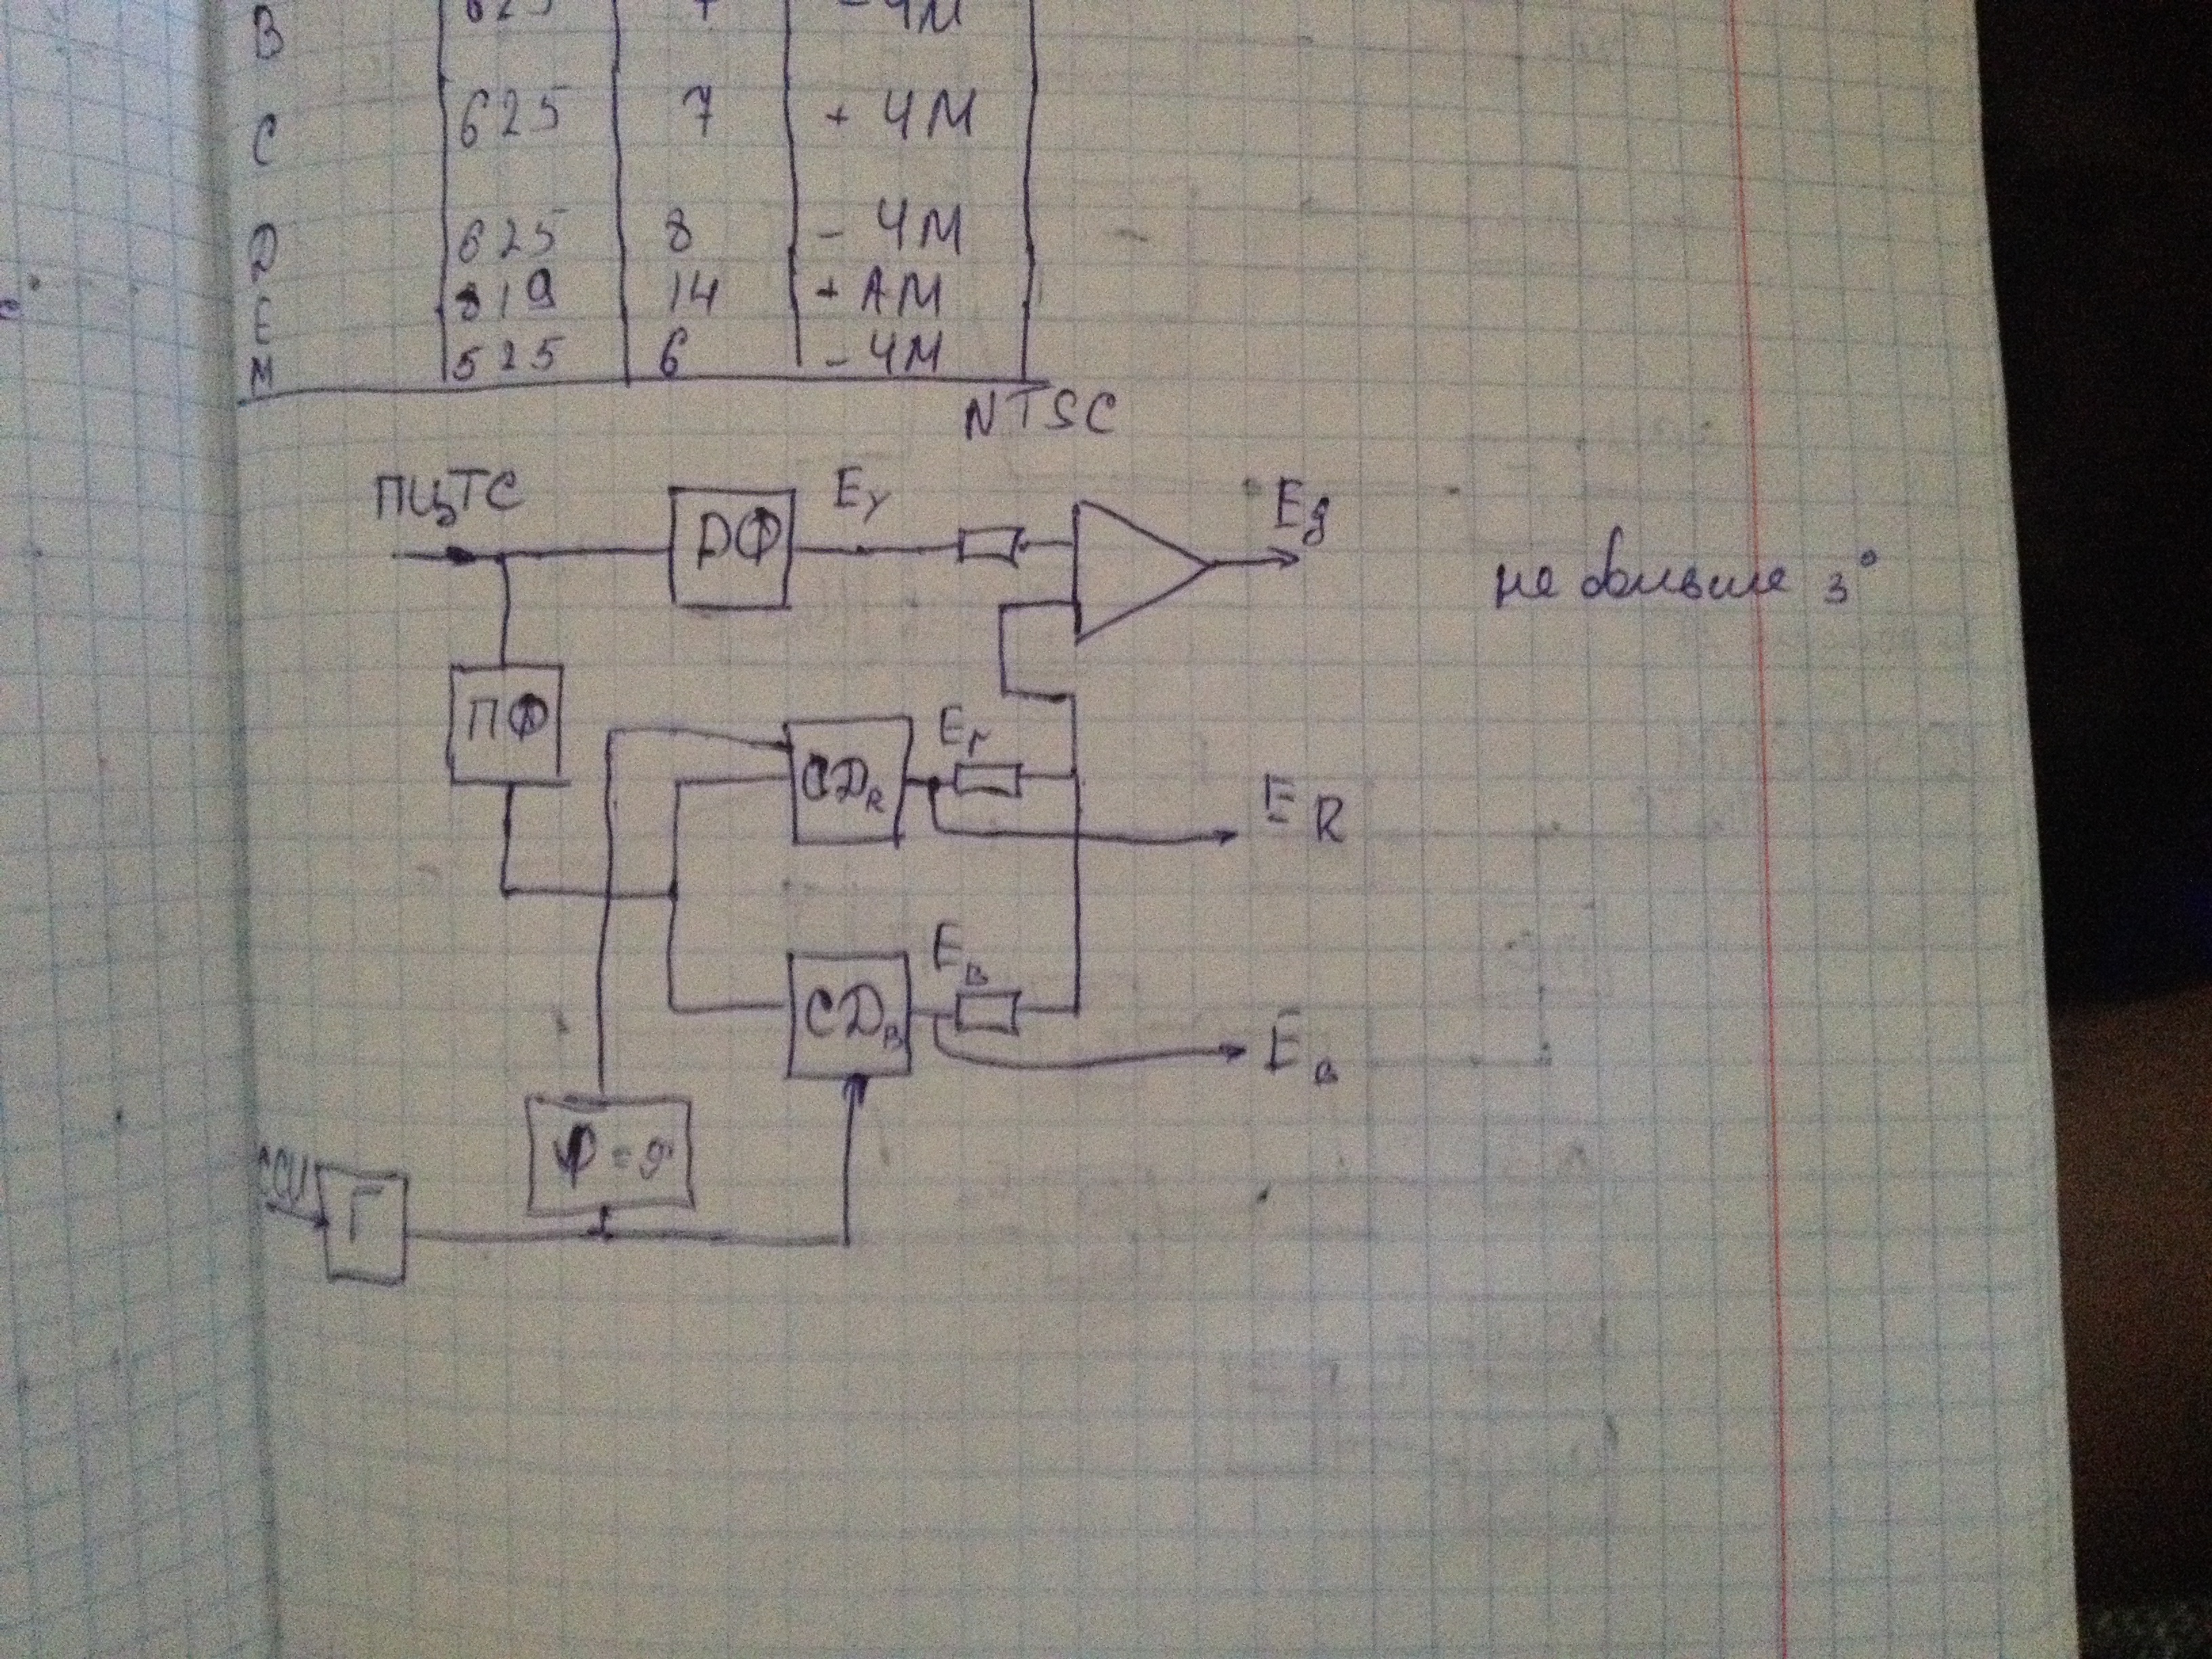 B 625 7 - ЧМ
C 625 7 + ЧМ
D 625 8 - ЧМ
E 819 14 + АМ
M 525 6 - ЧМ
NTSC
ПЦТС
DФ
Eу
Eg
не больше 3°
ПФ
СDR
Er
ER
СDB
EB
EB
φ = 9°
ССИ
Г